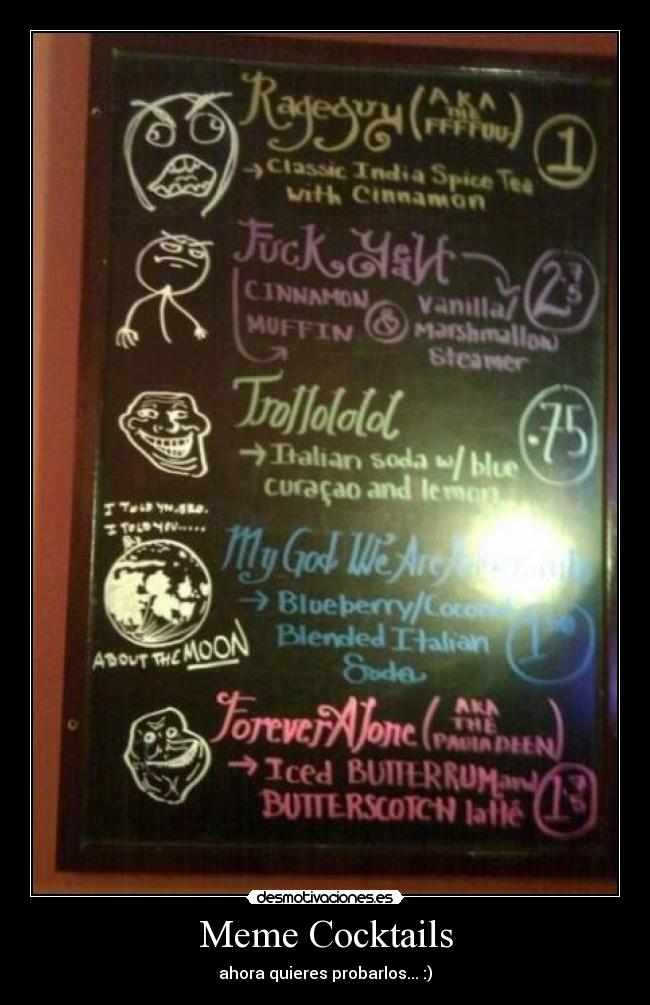 Rageguy (AKA
THE
FFFFUU-)
1
→ Classic India Spice Tea
with Cinnamon
Fuck Yeah
2.75
CINNAMON
MUFFIN
&
Vanilla/
Marshmallow
Steamer
Trollololol
.75
→ Italian soda w/ blue
curaçao and lemon
I TOLD YN, BRO.
I TOLD YOU.....
ABOUT THE MOON
My God We Are
→ Blueberry/Coconut
Blended Italian
Soda
Forever Alone (AKA
THE
PAULA DEEN)
→ Iced BUTTERRUM and
BUTTERSCOTCH latté
1.75
desmotivaciones.es
Meme Cocktails
ahora quieres probarlos... :)